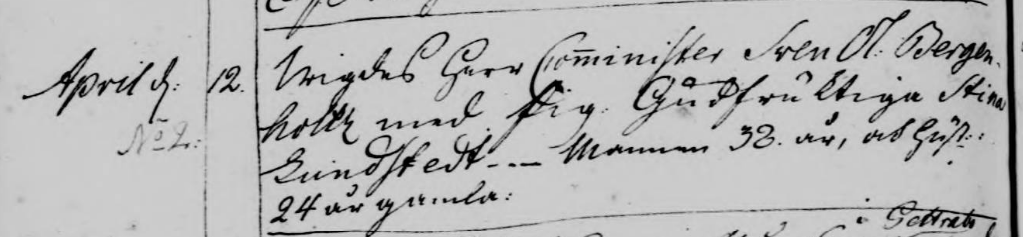 April d. 12. Wigdes Herr Com̄inister Sven Ol. Bergen-
No 2. holtz med Pig. Gudfruktiga Stina
Lundstedt --- Mannen 38. år, och Hust.:
24 år gamla: